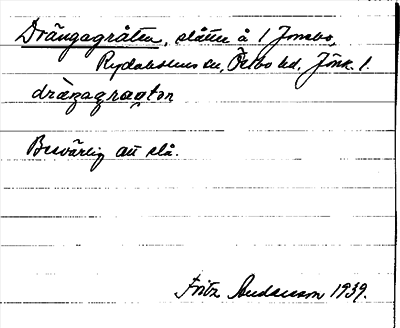 Drängagråten, slåtter å 1 Jonsbo,
Rydaholms sn, Östbo hd, Jönk. l.
drængagrøaton
Besvärlig att slå.
Fritz Andersson 1939.